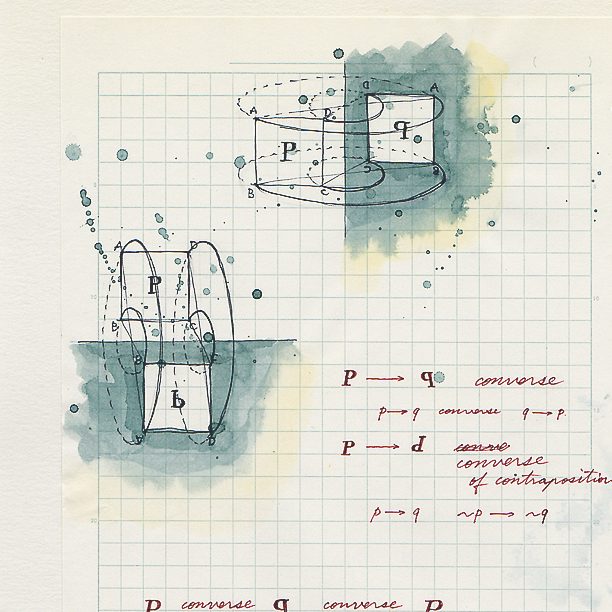 D A
A D
P q
D B
B C
A D
P
B C
B C
d
A D
P → q converse
p → q converse q → p.
P → d conve
converse
of contraposition
p → q ~p → ~q
P converse q converse P